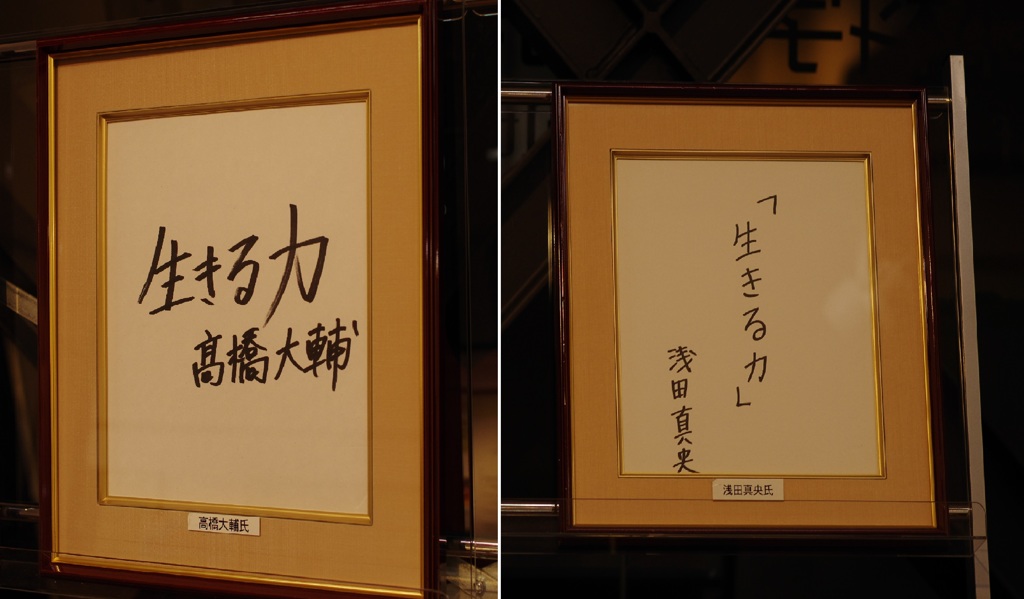 生きる力
髙橋大輔
高橋大輔氏
「生きる力」
浅田真央
浅田真央氏